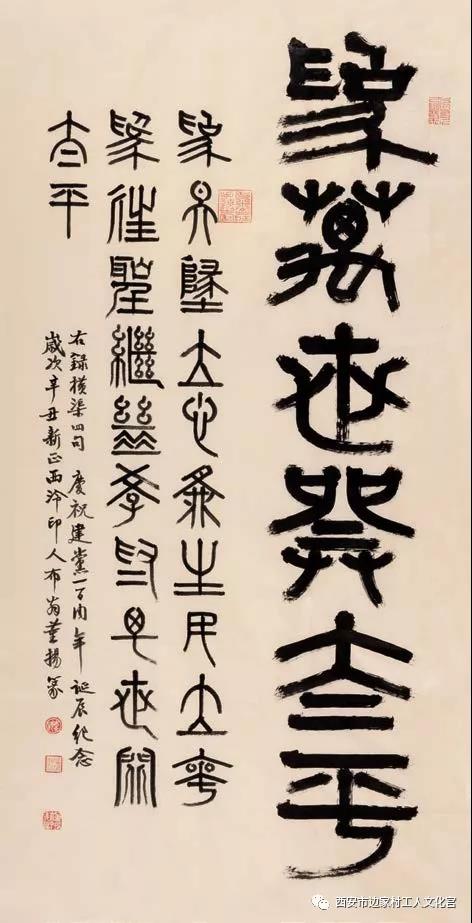 爲萬世開太平
爲天地立心爲生民立命
爲往聖繼絕學爲萬世開
太平
右錄橫渠四句 慶祝建黨一百周年 誕辰紀念
歲次辛丑新正西泠印人布翁董揚篆
西安市边家村工人文化宫